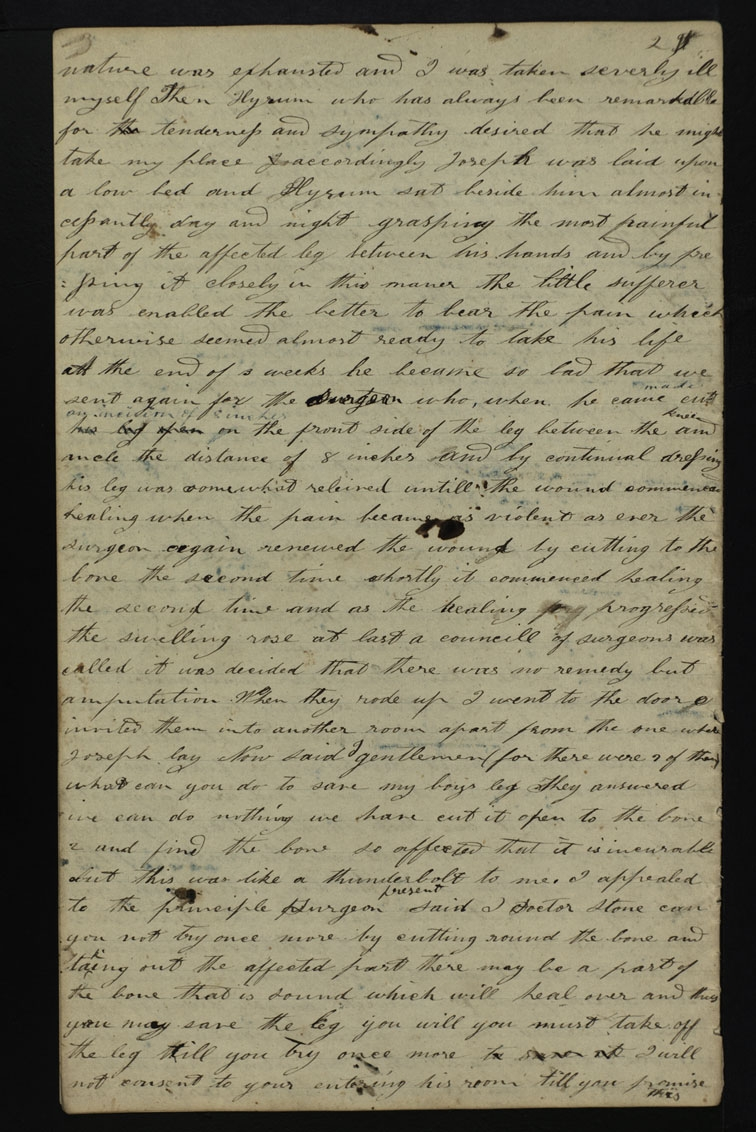 2
nature was exhausted and I was taken severly ill
myself Then Hyrum who has always been remarkable
for the tenderness and sympathy desired that he might
take my place & accordingly Joseph was laid upon
a low bed and Hyrum sat beside him almost in
cessantly day and night grasping the most painful
part of the affected leg between his hands and by pre
=ssing it closely in this maner the little sufferer
was enabled the better to bear the pain which
otherwise seemed almost ready to take his life
at the end of 3 weeks he became so bad that we
sent again for the surgeon who, when he came made cut
an incision of 8 inches
his leg open on the front side of the leg between the knee and
ancle the distance of 8 inches and by continual dressing
his leg was somewhat releived untill the wound commenced
healing when the pain became as violent as ever the
surgeon again renewed the wound by cutting to the
bone the second time shortly it commenced healing
the second time and as the healing progressed
the swelling rose at last a councill of surgeons was
called it was decided that there was no remedy but
amputation When they rode up I went to the door &
invited them into another room apart from the one where
Joseph lay Now said I gentlemen (for there were 7 of them)
what can you do to save my boys leg They answered
we can do nothing we have cut it open to the bone
2 and find the bone so affected that it is incurable
but this was like a thunderbolt to me. I appealed
to the principle surgeon present said I Doctor Stone can
you not try once more by cutting round the bone and
taking out the affected part there may be a part of
the bone that is sound which will heal over and thus
you may save the leg you will you must take off
the leg till you try once more to save it I will
not consent to your entering his room till you promise
this